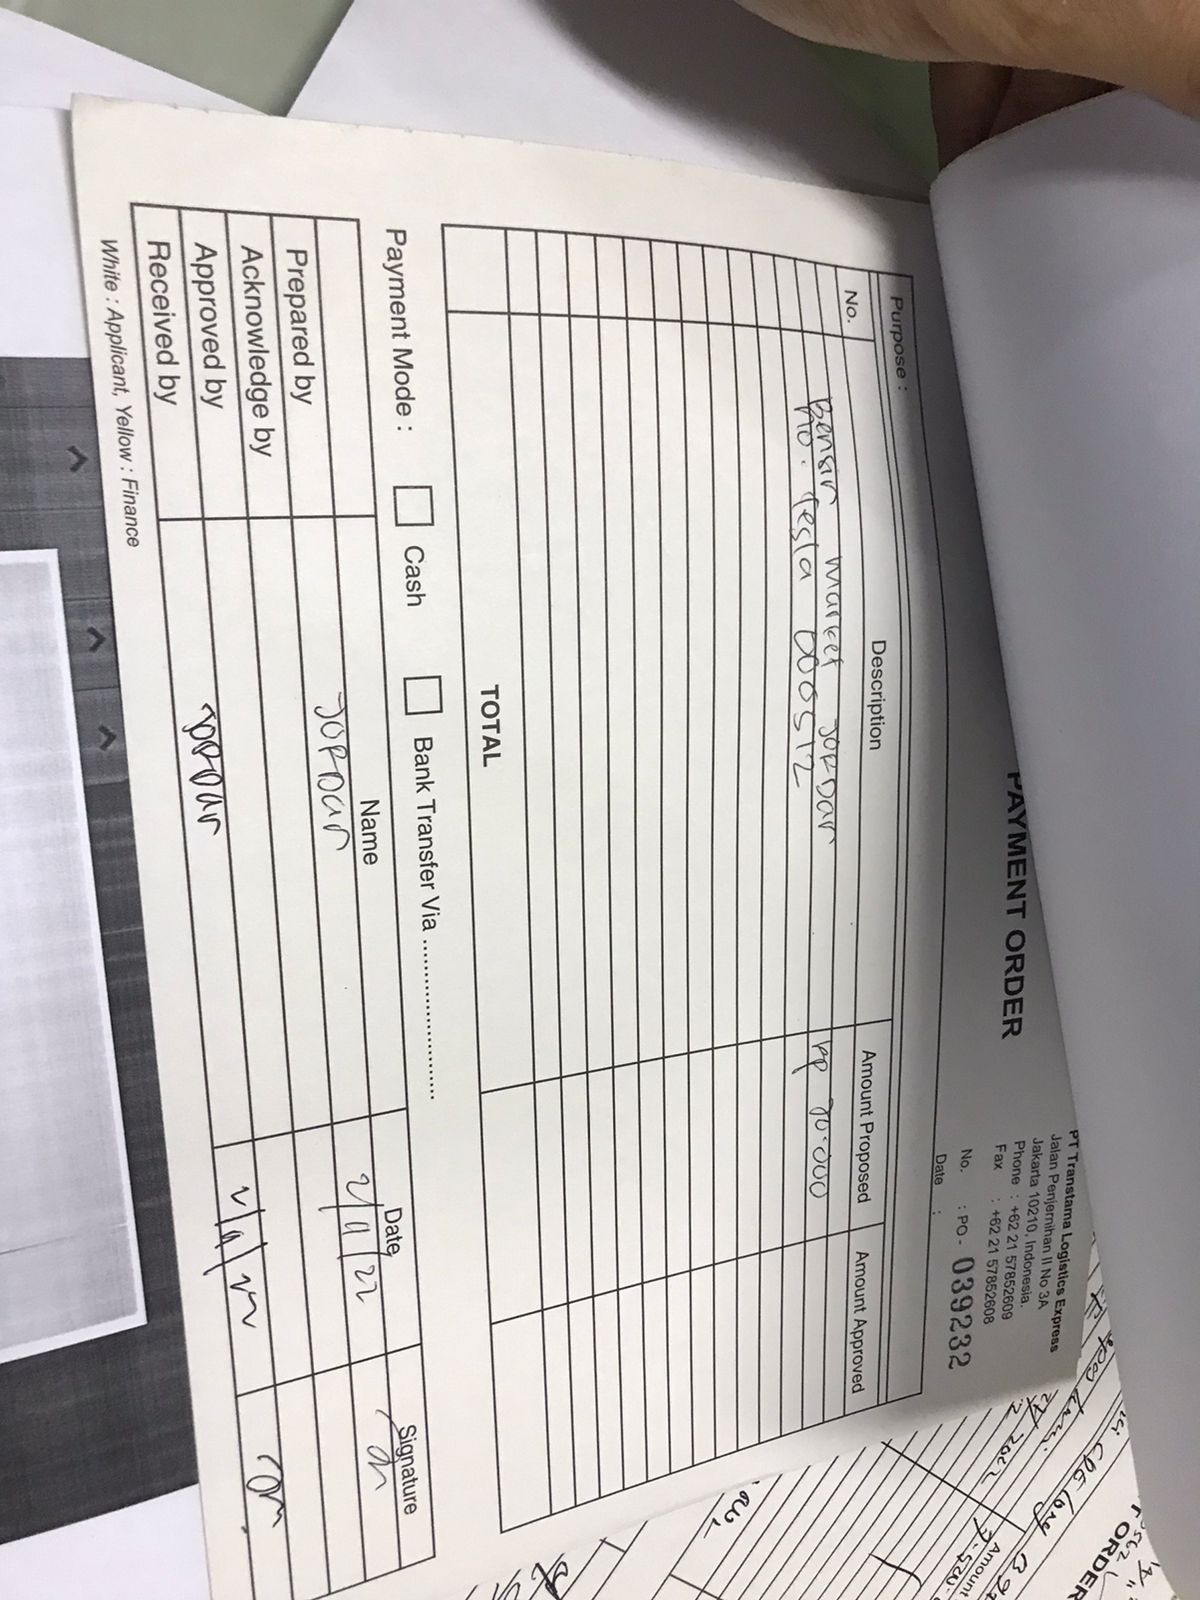 PAYMENT ORDER
PT Transtama Logistics Express
Jalan Penjernihan II No 3A
Jakarta 10210, Indonesia.
Phone : +62 21 57852609
Fax : +62 21 57852608
No. : PO - 039232
Date :
Purpose :
No. Description Amount Proposed Amount Approved
Bensin Market JORDan Rp 70.000
no. Tesla 000512
TOTAL
Payment Mode : Cash Bank Transfer Via ........................
Name Date Signature
Prepared by JORDan 2/11/22
Acknowledge by
Approved by JORDan
Received by
White : Applicant, Yellow : Finance
ORDER
Amount